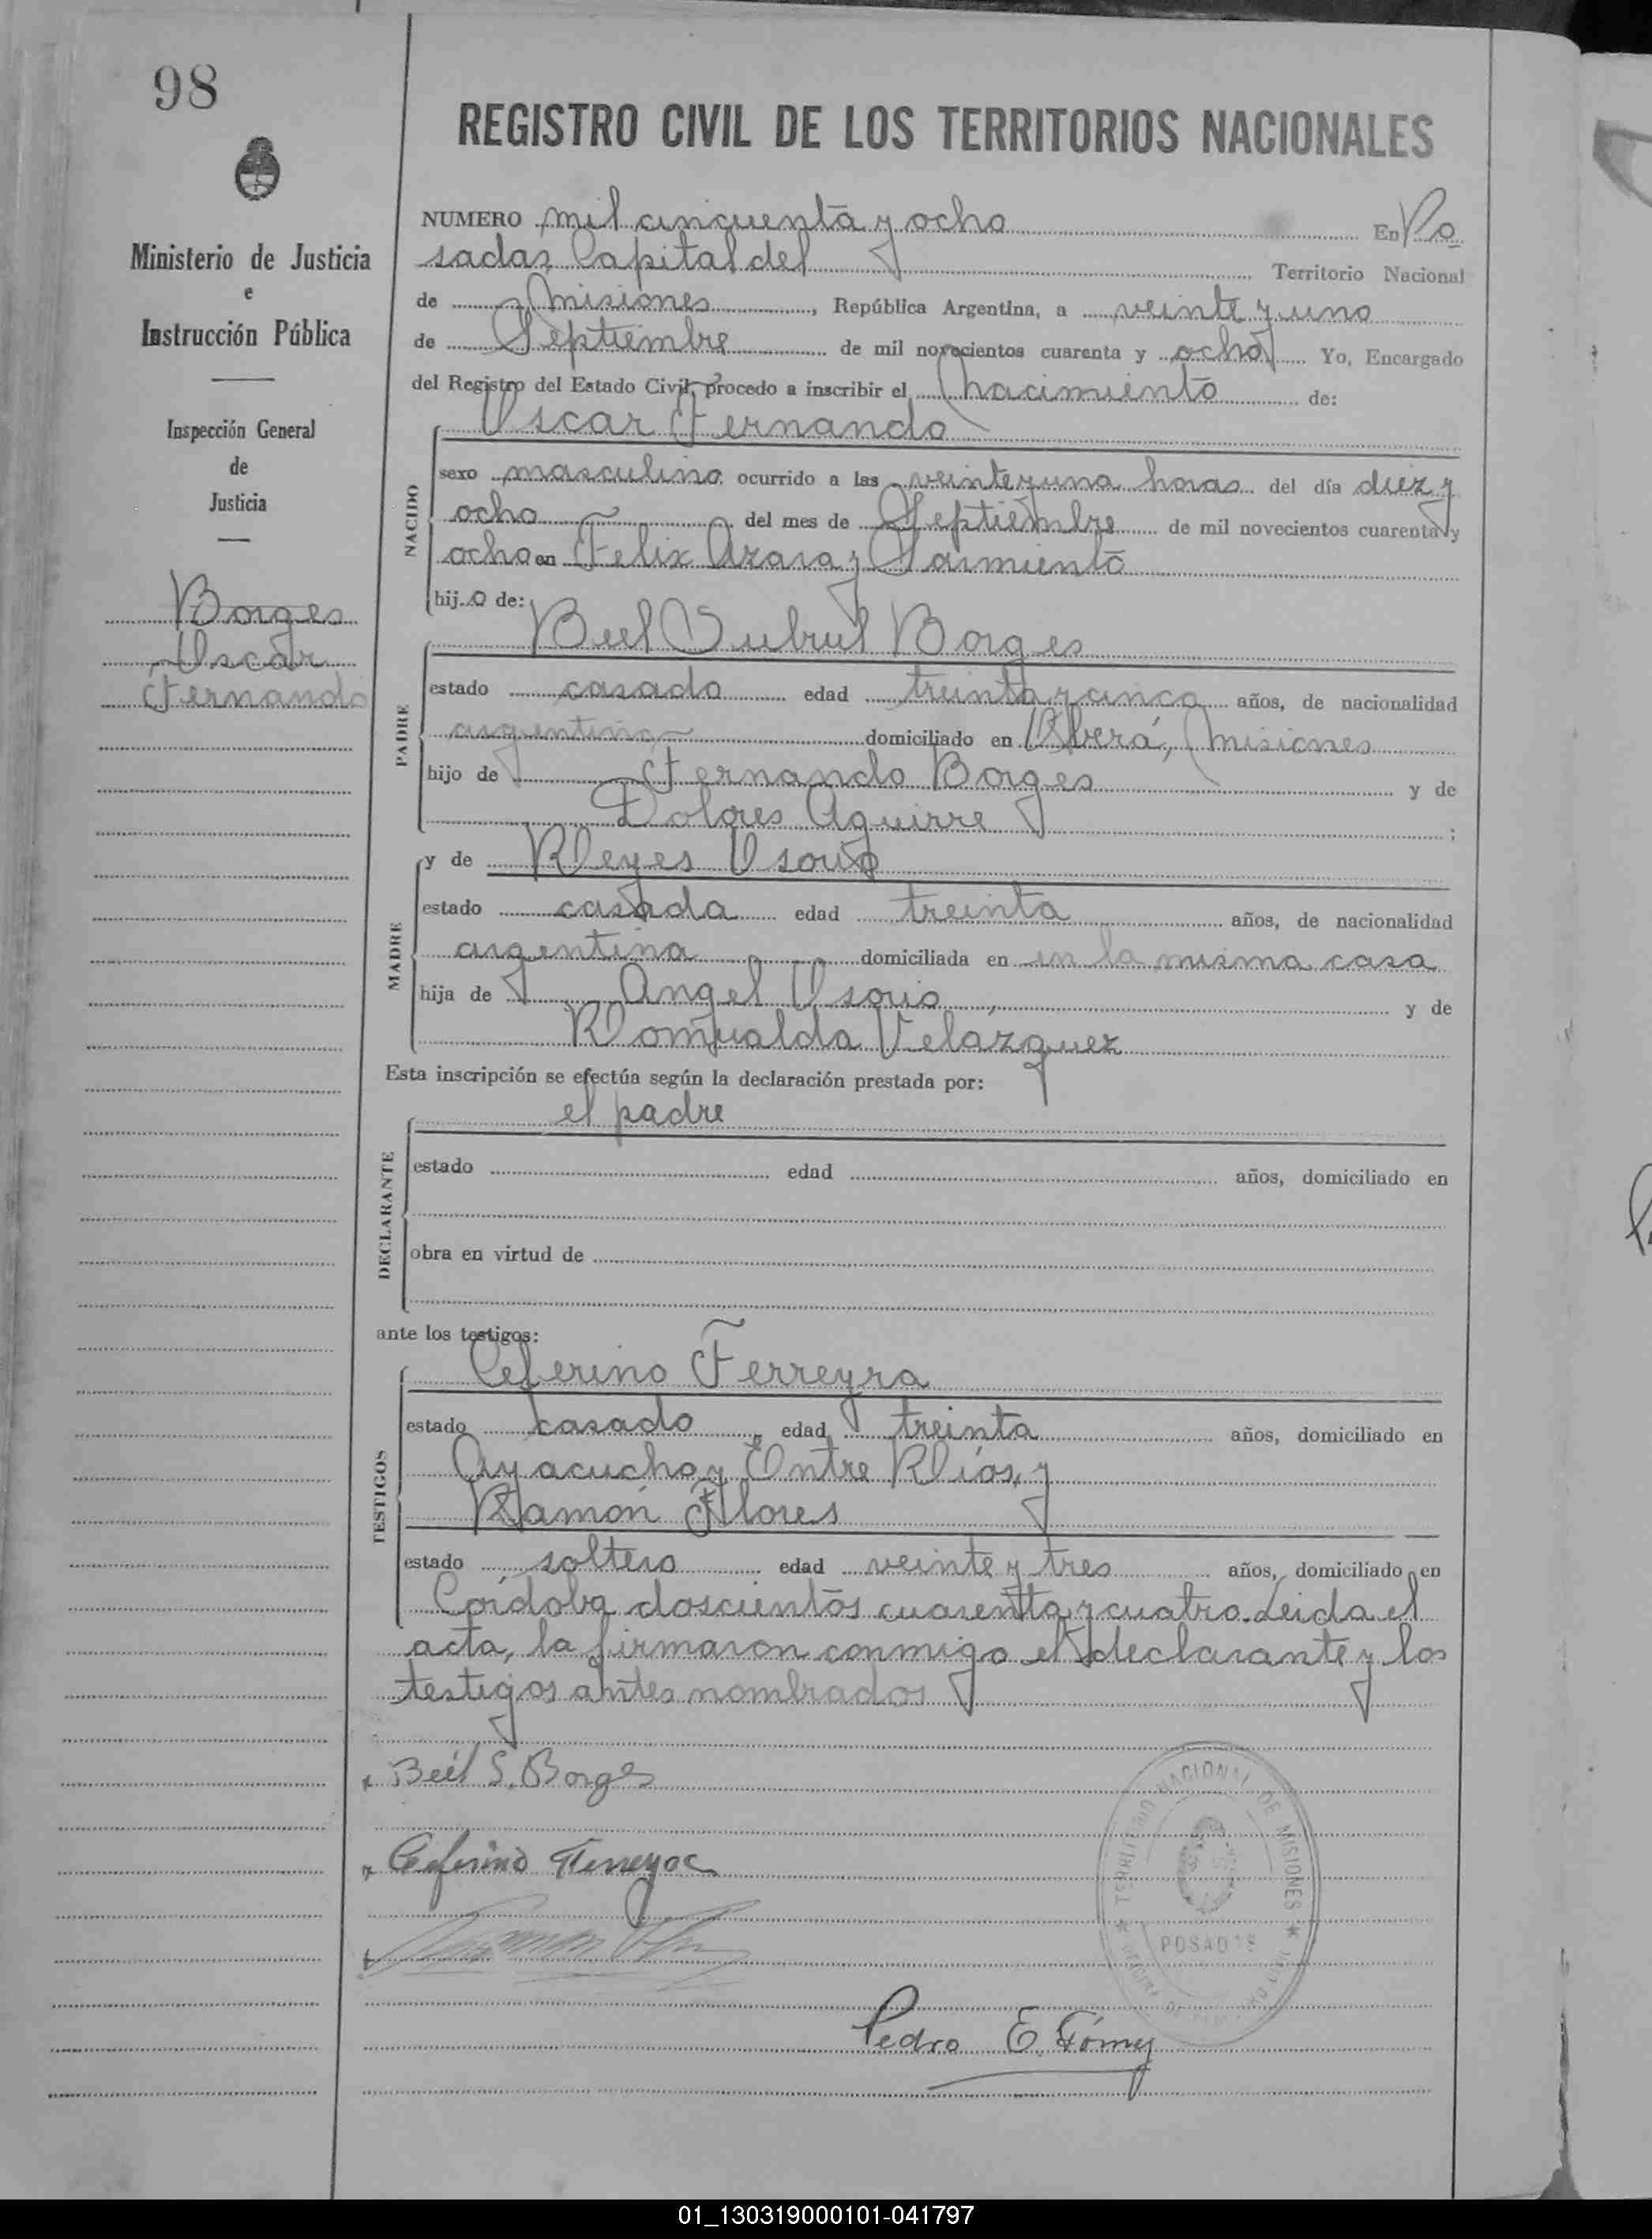 98
REGISTRO CIVIL DE LOS TERRITORIOS NACIONALES
Ministerio de Justicia
e
Instrucción Pública
Inspección General
de
Justicia
Borges
Oscar
Fernando
NUMERO mil cincuenta y ocho En Po
sadas, Capital del Territorio Nacional
de Misiones, República Argentina, a veinte y uno
de Septiembre de mil novecientos cuarenta y ocho Yo, Encargado
del Registro del Estado Civil, procedo a inscribir el nacimiento de:
Oscar Fernando
NACIDO
sexo masculino ocurrido a las veinte y una horas del día diez y
ocho del mes de Septiembre de mil novecientos cuarenta y
ocho en Felix Azara y Sarmiento
hijo de:
Buel Borges
PADRE
estado casado edad treinta y cinco años, de nacionalidad
argentina domiciliado en Oberá, Misiones
hijo de Fernando Borges y de
Dolores Aguirre ;
y de Reyes Osorio
MADRE
estado casada edad treinta años, de nacionalidad
argentina domiciliada en en la misma casa
hija de Angel Osorio y de
Romualda Velazquez
Esta inscripción se efectúa según la declaración prestada por:
el padre
DECLARANTE
estado edad años, domiciliado en
obra en virtud de
ante los testigos:
Ceferino Ferreyra
TESTIGOS
estado casado edad treinta años, domiciliado en
Ayacucho y Entre Ríos, y
Ramón Flores
estado soltero edad veinte y tres años, domiciliado en
Córdoba doscientos cuarenta y cuatro. Leida el
acta, la firmaron conmigo el declarante y los
testigos antes nombrados
Beél S. Borges
Ceferino Ferreyra
TERRITORIO NACIONAL DE MISIONES
POSADAS
Pedro E. Gómez
01_130319000101-041797